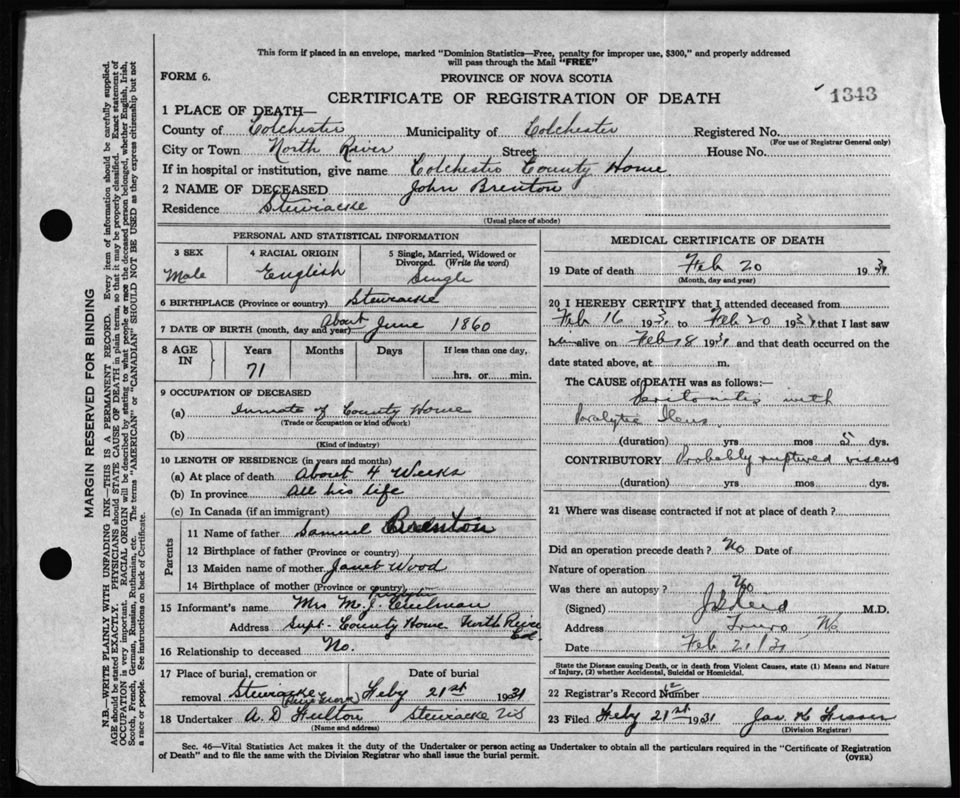 This form if placed in an envelope, marked "Dominion Statistics—Free, penalty for improper use, $300," and properly addressed
will pass through the Mail "FREE"
FORM 6.
PROVINCE OF NOVA SCOTIA
CERTIFICATE OF REGISTRATION OF DEATH
1343
1 PLACE OF DEATH—
County of Colchester Municipality of Colchester Registered No.
(For use of Registrar General only)
City or Town North River Street House No.
If in hospital or institution, give name Colchester County Home
2 NAME OF DECEASED John Brenton
Residence Stewiacke
(Usual place of abode)
PERSONAL AND STATISTICAL INFORMATION
3 SEX 4 RACIAL ORIGIN 5 Single, Married, Widowed or
Divorced. (Write the word)
Male English Single
6 BIRTHPLACE (Province or country) Stewiacke
7 DATE OF BIRTH (month, day and year) About June 1860
8 AGE IN Years Months Days If less than one day,
71 hrs. or min.
9 OCCUPATION OF DECEASED
(a) Inmate of County Home
(Trade or occupation or kind of work)
(b)
(Kind of industry)
10 LENGTH OF RESIDENCE (in years and months)
(a) At place of death About 4 Weeks
(b) In province All his life
(c) In Canada (if an immigrant)
Parents
11 Name of father Samuel Brenton
12 Birthplace of father (Province or country)
13 Maiden name of mother Janet Wood
14 Birthplace of mother (Province or country)
15 Informant's name Mrs M. J.
Address Supt- County Home North River
Col.
16 Relationship to deceased No.
17 Place of burial, cremation or Date of burial
removal Stewiacke Feby 21st 1931
18 Undertaker A. D Fulton Stewiacke
(Name and address)
MEDICAL CERTIFICATE OF DEATH
19 Date of death Feb 20 1931
(Month, day and year)
20 I HEREBY CERTIFY that I attended deceased from
Feb 16 1931 to Feb 20 1931 that I last saw
him alive on Feb 18 1931 and that death occurred on the
date stated above, at m.
The CAUSE of DEATH was as follows:—
Peritonitis with
Paralytic Ileus
(duration) yrs mos 5 dys.
CONTRIBUTORY Probably ruptured viscus
(duration) yrs. mos. dys.
21 Where was disease contracted if not at place of death?
Did an operation precede death? No Date of
Nature of operation
Was there an autopsy? No
(Signed) M.D.
Address Truro, NS
Date Feb 21/31
State the Disease causing Death, or in death from Violent Causes, state (1) Means and Nature
of Injury, (2) whether Accidental, Suicidal or Homicidal.
22 Registrar's Record Number 2
23 Filed Feby 21st 1931 Jas. K
(Division Registrar)
Sec. 46—Vital Statistics Act makes it the duty of the Undertaker or person acting as Undertaker to obtain all the particulars required in the "Certificate of Registration
of Death" and to file the same with the Division Registrar who shall issue the burial permit.
(OVER)
MARGIN RESERVED FOR BINDING
N.B.—WRITE PLAINLY WITH UNFADING INK—THIS IS A PERMANENT RECORD. Every item of information should be carefully supplied.
AGE should be stated EXACTLY. PHYSICIANS should STATE CAUSE OF DEATH in plain terms, so that it may be properly classified. Exact statement of
OCCUPATION is very important. RACIAL ORIGIN will be described by stating to what people or race the deceased person belonged, whether English, Irish,
Scotch, French, German, Russian, Ruthenian, etc. The terms "AMERICAN" or "CANADIAN" SHOULD NOT BE USED as they express citizenship but not
a race or people. See instructions on back of Certificate.